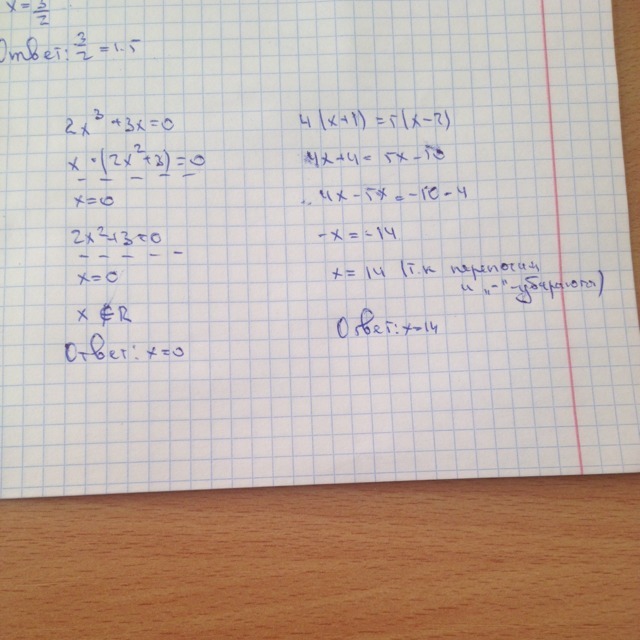 x=3/2
Ответ: 3/2 = 1.5
2x³+3x=0
x·(2x²+3)=0
x=0
2x²+3=0
x=0
x ∉ R
Ответ: x=0
4(x+1)=5(x-2)
4x+4=5x-10
4x-5x=-10-4
-x=-14
x=14 (т.к
и „-"-убираются)
Ответ: x=14